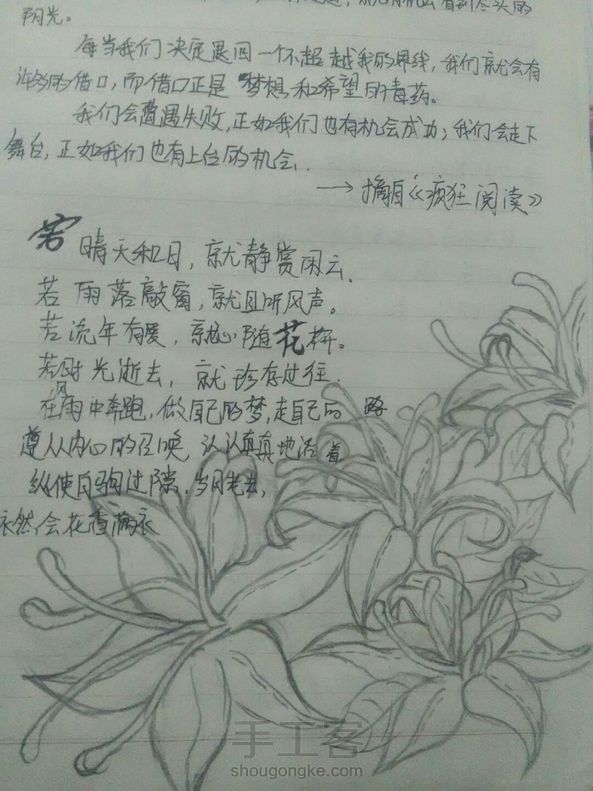 阳光。
每当我们决定退回一个不超越我的界线，我们就会有
许多的借口，而借口正是梦想和希望的毒药。
我们会遭遇失败，正如我们也有机会成功；我们会走下
舞台，正如我们也有上台的机会．
→摘自《疯狂阅读》
若晴天和日，就静赏闲云．
若雨落敲窗，就且听风声。
若流年有爱，就心随花开。
若时光逝去，就珍存过往．
在风雨中奔跑，做自己的梦，走自己的路
遵从内心的召唤，认认真真地活着
纵使白驹过隙，岁月老去，
依然会花香满衣
手工客
shougongke.com